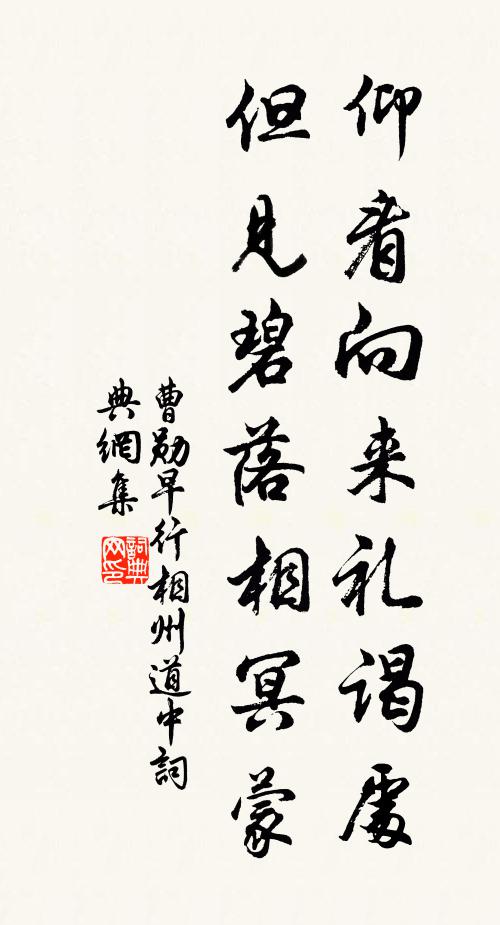 仰看向来礼谒處
但見碧落相冥蒙
曹勛早行相州道中詞
典網集
詞典網印